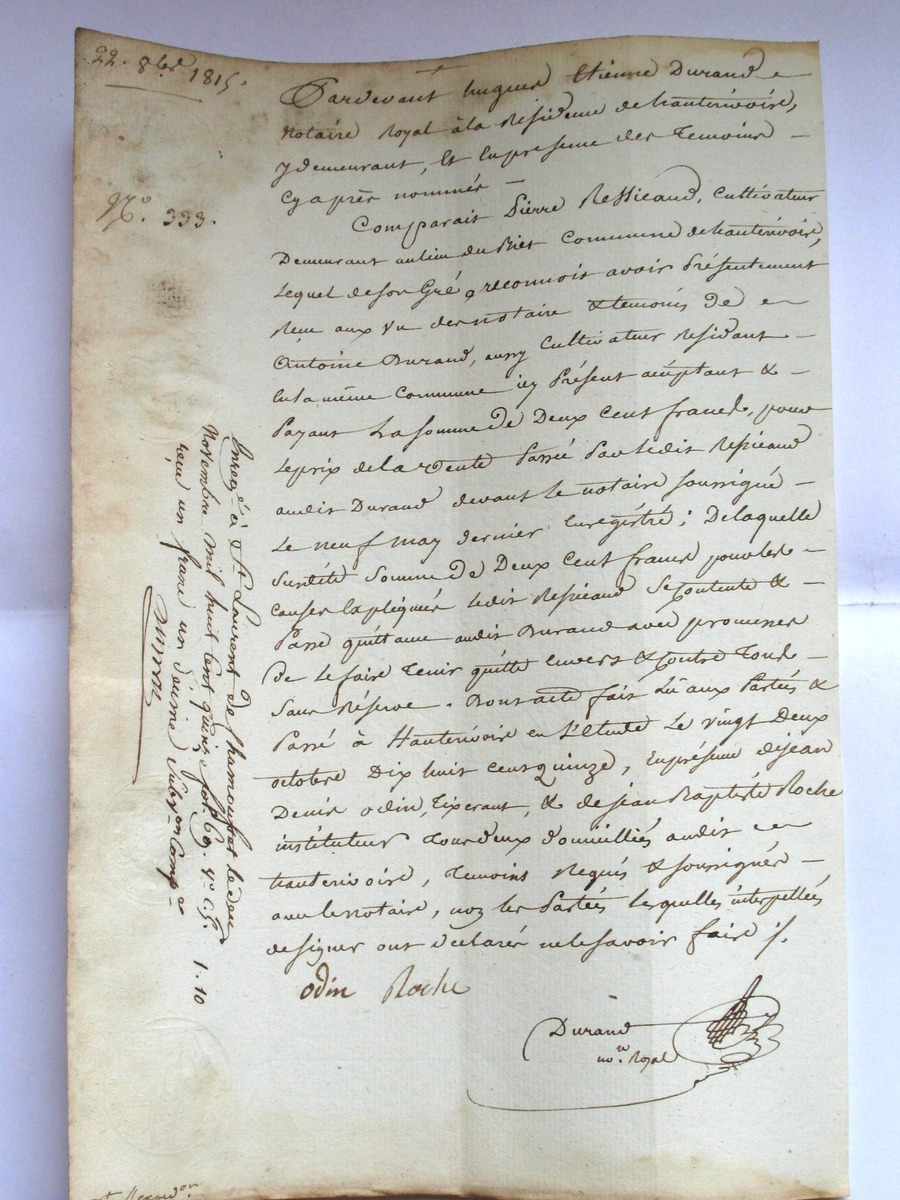 22. 8bre 1815.
N.º 333.
Pardevant hugues Etienne Durand
notaire Royal à la Résidence de hauterivoire,
y demeurant, Et En presence des Temoins
Cyaprès nommés
Comparait Pierre Ressicaud, Cultivateur
Demeurant au lieu du Commune de hauterivoire,
Lequel de son Gré reconnoit avoir Présentement
Reçu aux Vu des notaire & temoins de
Antoine Durand, aussy Cultivateur Résidant
En la même Commune icy Présent acceptant &
Payant La somme de Deux Cent francs, pour
Le prix de la Vente Passée Par ledit Ressicaud
audit Durand devant le notaire soussigné
Le neuf may dernier Enregistré; De laquelle
Susdite Somme de Deux Cent francs pour les
causes Expliquées ledit Ressicaud Se Contente &
Passe quittance audit Durand avec promesse
De le faire Tenir quitte Envers & Contre Tous
Sans Réserve. Dont acte fait Lû aux Parties &
Passé à Hauterivoire en L'Etude Le vingt Deux
octobre Dix huit Cent quinze, En présence de jean
Denis odin, Tixerant, & de jean Baptiste Roche
instituteur Tous deux domiciliés audit
hauterivoire, Temoins Requis & soussignés
avec le notaire, non les Parties lesquelles interpellées
de signer ont déclarés ne le savoir faire ·/.
odin Roche
Durand
no.re Royal
Enreg.é à St Laurent de Chamousset le deux
Novembre mil huit Cent quinze fol. 69. V.º c. 5.
reçu un franc un Décime Subv.on Comp.se
1.10